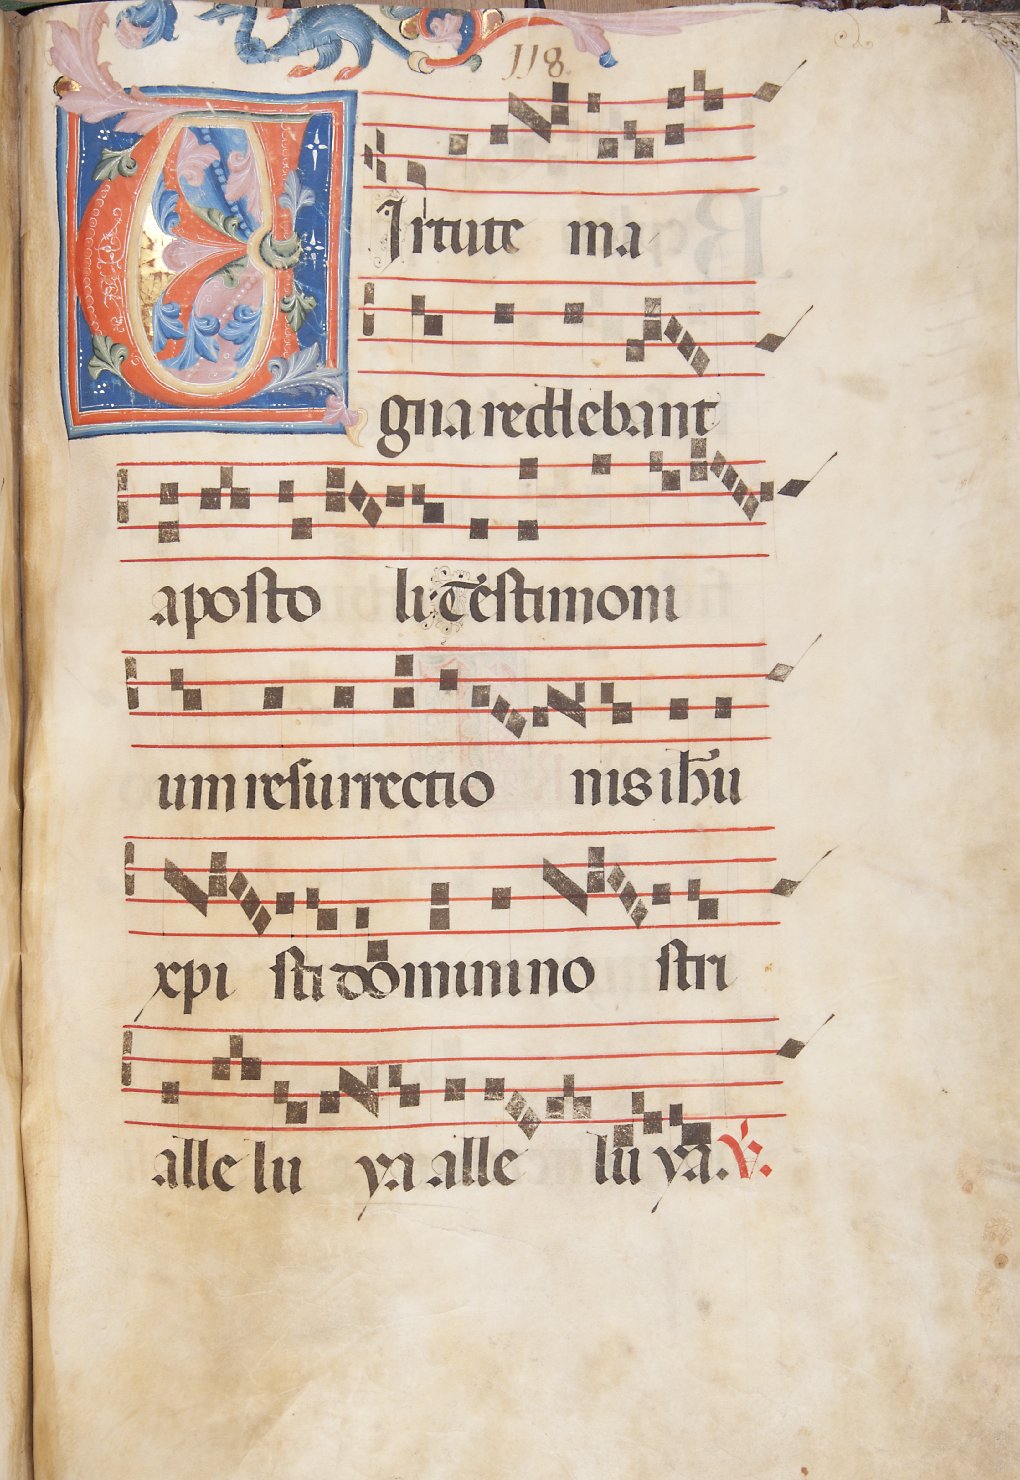 118
VIrtute ma
gna reddebant
aposto li Testimoni
um resurrectio nis ihu
xpi sti domini no stri
alle lu ya alle lu ya. V.